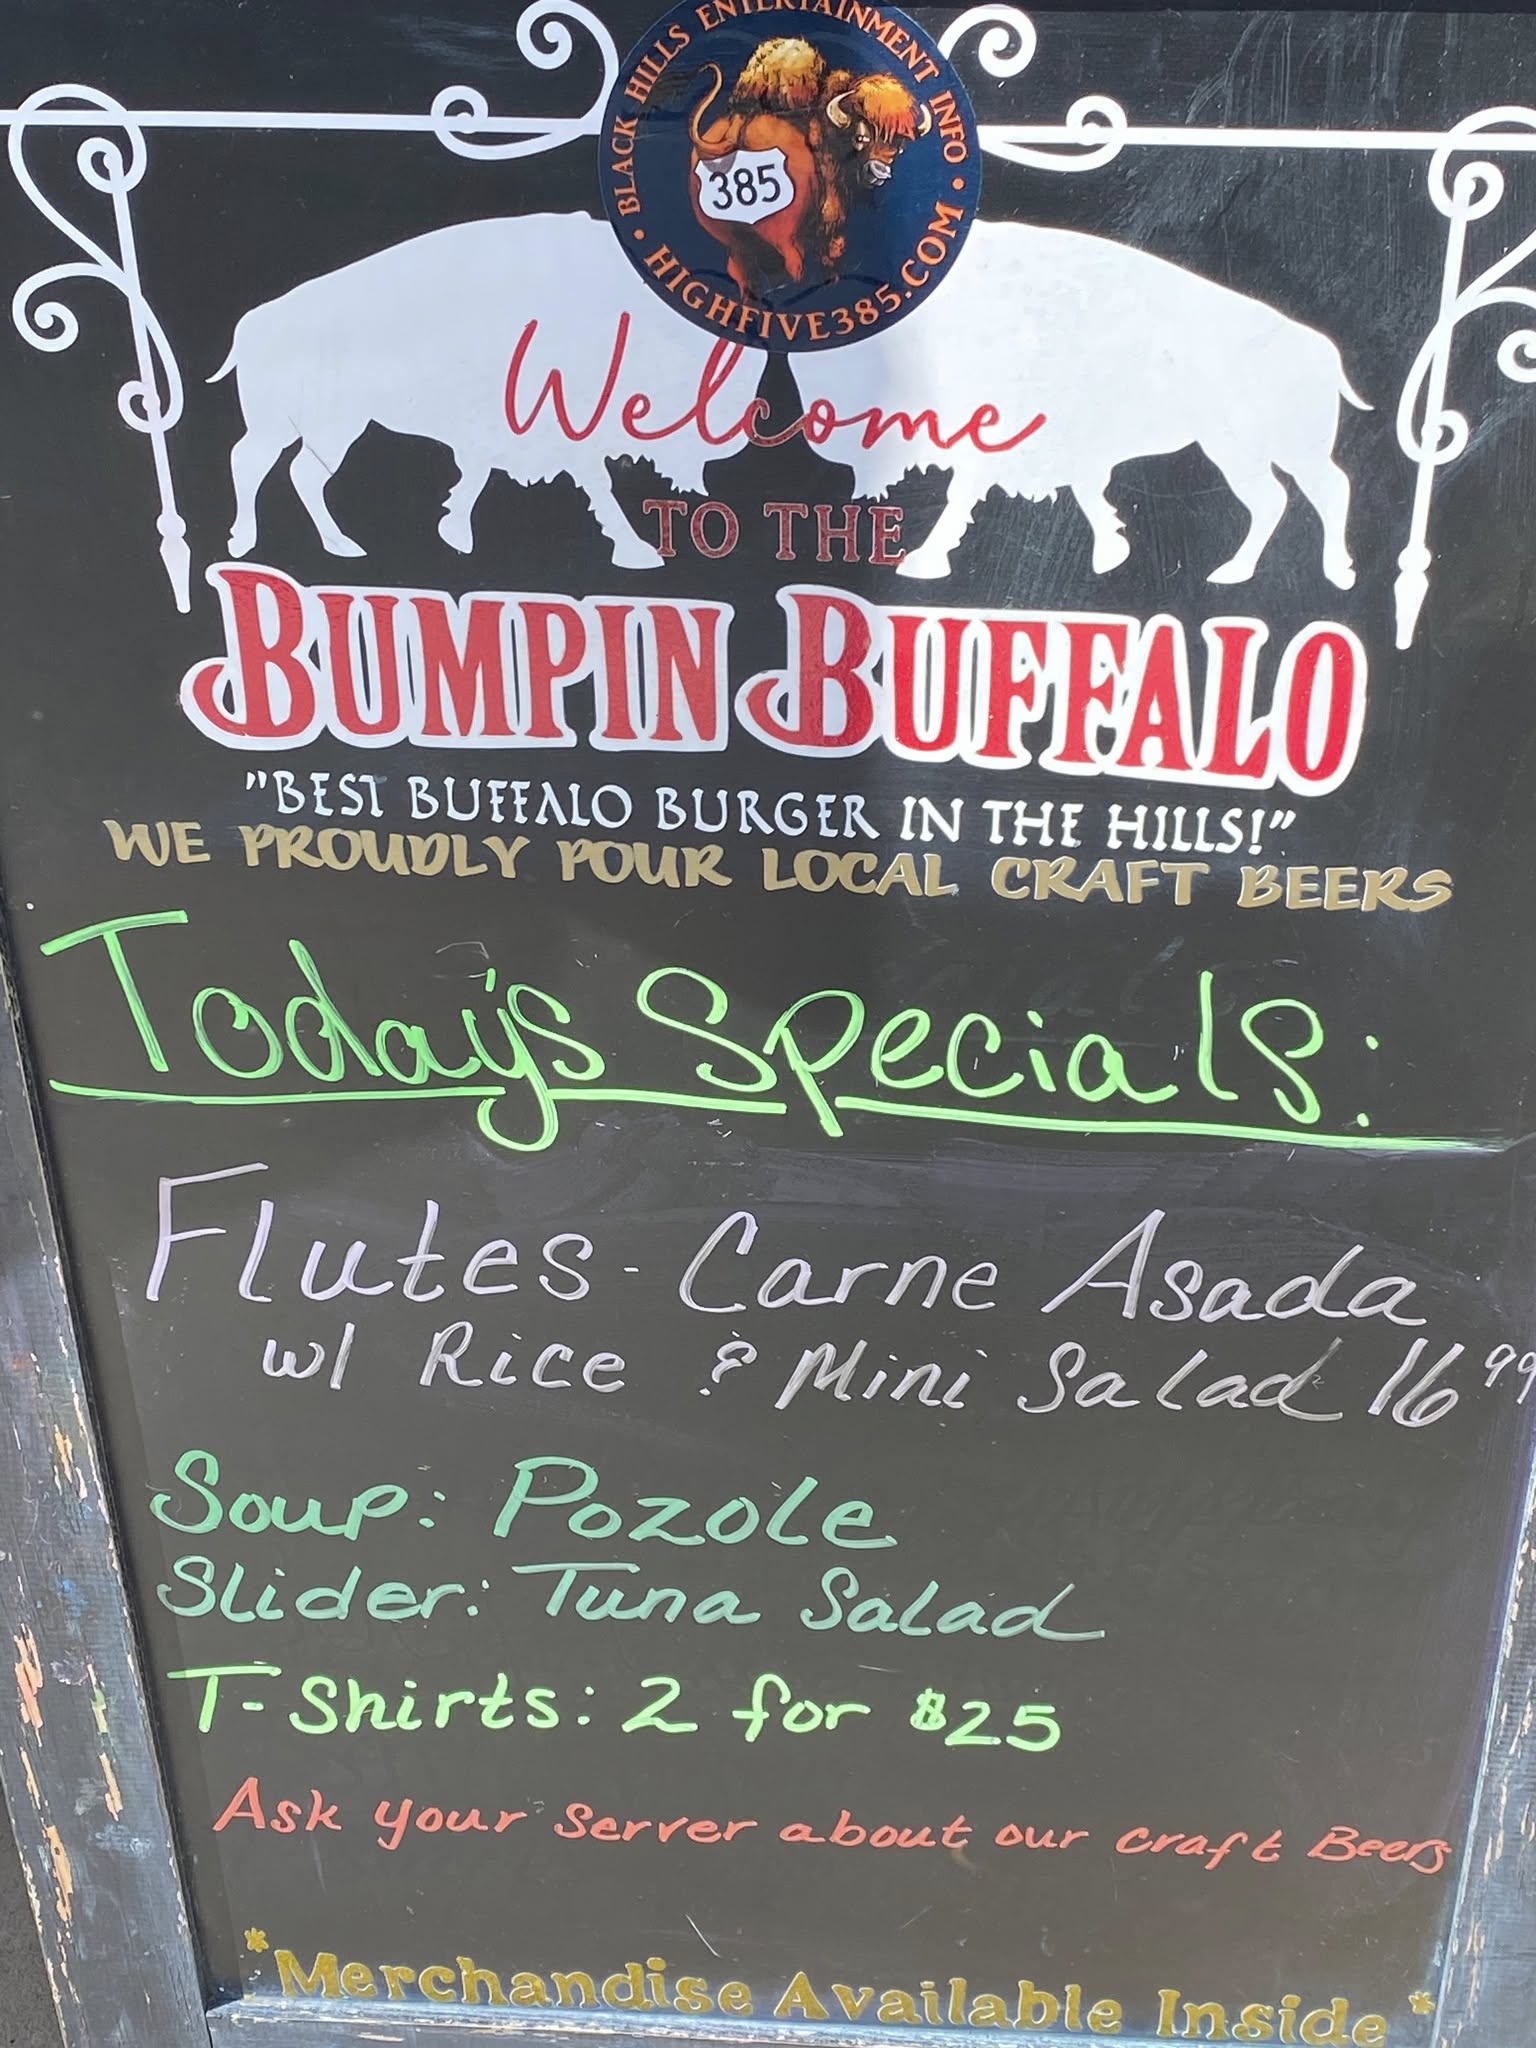 BLACK HILLS ENTERTAINMENT INFO
385
• HIGHFIVE385.COM •
Welcome
TO THE
BUMPIN BUFFALO
"BEST BUFFALO BURGER IN THE HILLS!"
WE PROUDLY POUR LOCAL CRAFT BEERS
Today's Specials:
Flutes - Carne Asada
w/ Rice & Mini Salad 16 99
Soup: Pozole
Slider: Tuna Salad
T-Shirts: 2 for $25
Ask your server about our craft Beers
*Merchandise Available Inside*